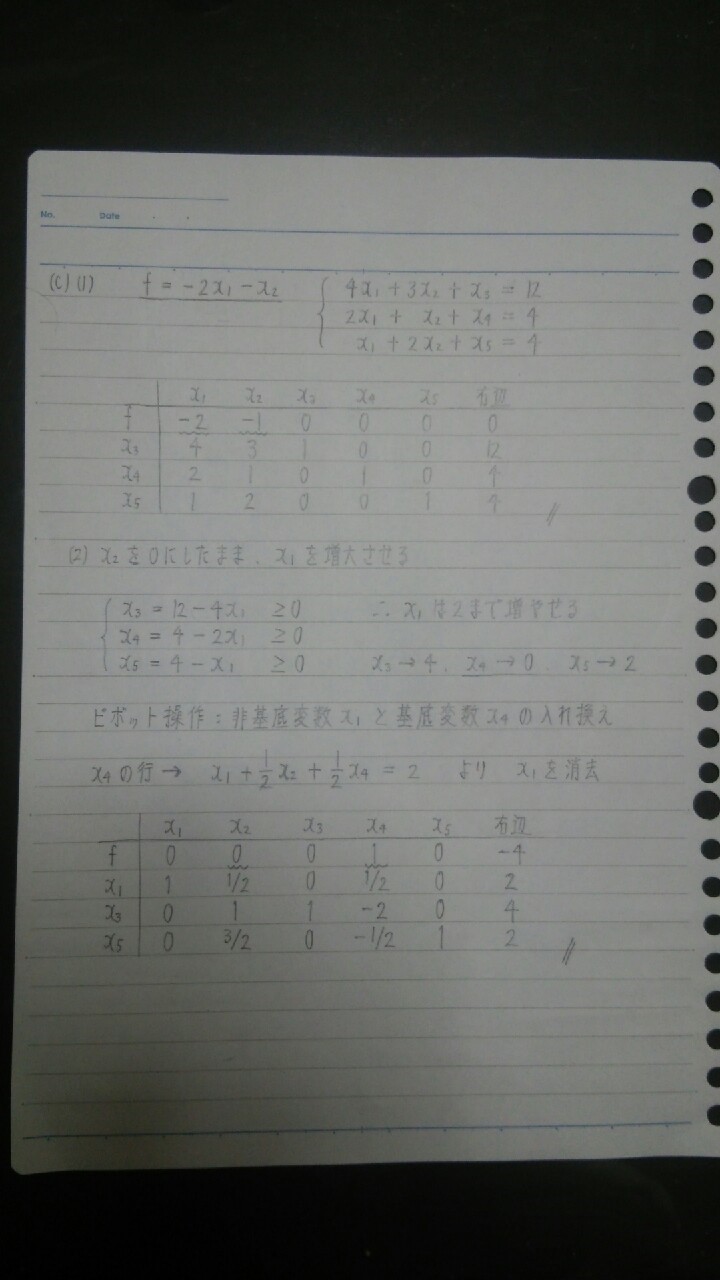 No. Date . .
(c) (1) f = -2x₁ - x₂ { 4x₁ + 3x₂ + x₃ = 12
2x₁ + x₂ + x₄ = 4
x₁ + 2x₂ + x₅ = 4
x₁ x₂ x₃ x₄ x₅ 右辺
f -2 -1 0 0 0 0
x₃ 4 3 1 0 0 12
x₄ 2 1 0 1 0 4
x₅ 1 2 0 0 1 4 //
(2) x₂を0にしたまま、x₁を増大させる
{ x₃ = 12 - 4x₁ ≥ 0 ∴ x₁は2まで増やせる
x₄ = 4 - 2x₁ ≥ 0
x₅ = 4 - x₁ ≥ 0 x₃→4、x₄→0、x₅→2
ピボット操作：非基底変数x₁と基底変数x₄の入れ換え
x₄の行→ x₁ + 1/2 x₂ + 1/2 x₄ = 2 より x₁を消去
x₁ x₂ x₃ x₄ x₅ 右辺
f 0 0 0 1 0 -4
x₁ 1 1/2 0 1/2 0 2
x₃ 0 1 1 -2 0 4
x₅ 0 3/2 0 -1/2 1 2 //